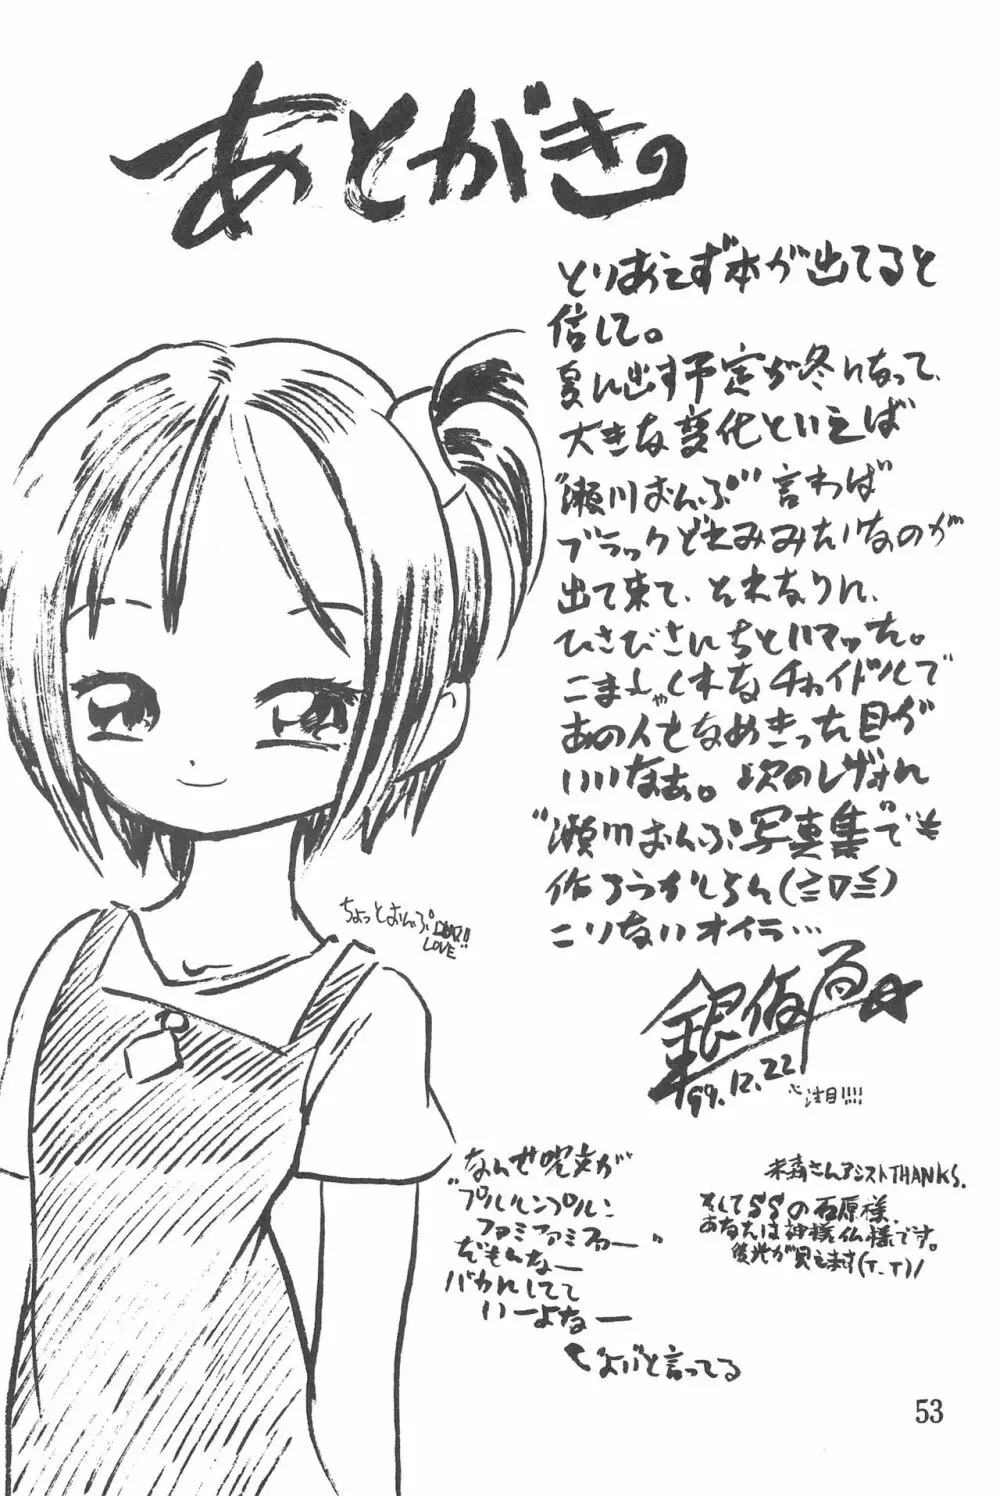 あとがき。
とりあえず本が出てると
信じて。
夏に出す予定が冬になって、
大きな変化といえば
"瀬川おんぷ"言わば
ブラックどれみみたいなのが
出て来て、それなりに、
ひさびさにちとハマった。
こましゃくれたチャイドルで
あの人をなめきった目が
いいなぁ。次のレヴォに
"瀬川おんぷ写真集"でも
作ろうかしらん(≧▽≦)
こりないオイラ…
ちょっとおんぷ
LOVE!!
99.12.22
注目!!!!
なんせ呪文が
"プルルンプルン
ファミファミファー"
だもんなー
バカにしてて
いーよなー
米森さんアシストTHANKS.
そしてSSの石原様
あなたは神様仏様です。
後光が見えます(T_T)/
53